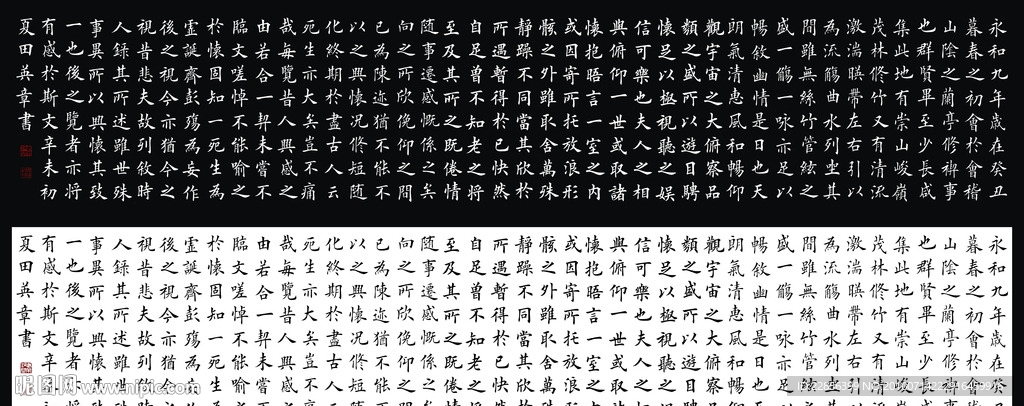 永和九年歲在癸丑
暮春之初會於會稽
山陰之蘭亭修禊事
也群賢畢至少長咸
集此地有崇山峻嶺
茂林修竹又有清流
激湍暎帶左右引以
為流觴曲水列坐其
間雖無絲竹管絃之
盛一觴一詠亦足以
暢敘幽情是日也天
朗氣清惠風和暢仰
觀宇宙之大俯察品
類之盛所以遊目騁
懷足以極視聽之娛
信可樂也夫人之相
與俯仰一世或取諸
懷抱晤言一室之內
或因寄所託放浪形
骸之外雖取舍萬殊
靜躁不同當其欣於
所遇暫得於己快然
自足曾不知老之將
至及其所之既倦情
随事遷感慨係之矣
向之所欣俛仰之間
已為陳迹猶不能不
以之興懷況修短随
化終期於盡古人云
死生亦大矣豈不痛
哉每覽昔人興感之
由若合一契未嘗不
臨文嗟悼不能喻之
於懷固知一死生為
虛誕齊彭殤為妄作
後之視今亦猶今之
視昔悲夫故列敘時
人錄其所述雖世殊
事異所以興懷其致
一也後之覽者亦將
有感於斯文辛未初
夏田英章書
永和九年歲在癸
暮春之初會於
山陰之蘭亭修
也群賢畢至少
集此地有崇山
茂林修竹又有
激湍暎帶左右
為流觴曲水列
間雖無絲竹管
盛一觴一詠亦足
暢敘幽情是日也
朗氣清惠風和暢
觀宇宙之大俯察
類之盛所以遊目
懷足以極視聽之
信可樂也夫人之
與俯仰一世或取
懷抱晤言一室之
或因寄所託放浪
骸之外雖取舍萬
靜躁不同當其欣
所遇暫得於己快
自足曾不知老之
至及其所之既倦
随事遷感慨係之
向之所欣俛仰之
已為陳迹猶不能
以之興懷況修短
化終期於盡古人
死生亦大矣豈不
哉每覽昔人興感
由若合一契未嘗
臨文嗟悼不能喻
於懷固知一死生
虛誕齊彭殤為
後之視今亦猶
視昔悲夫故列
人錄其所述雖
事異所以興懷
一也後之覽者
有感於斯文辛
夏田英章書
昵图网 www.nipic.com